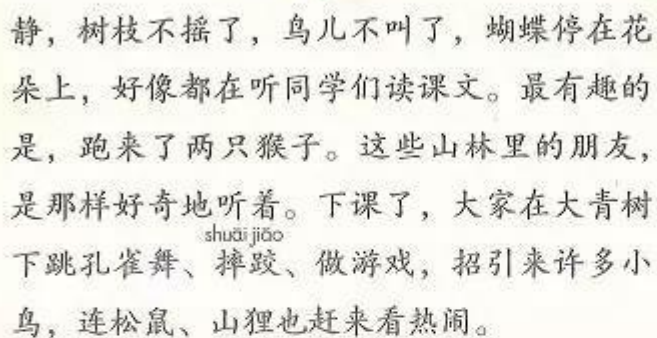 静，树枝不摇了，鸟儿不叫了，蝴蝶停在花
朵上，好像都在听同学们读课文。最有趣的
是，跑来了两只猴子。这些山林里的朋友，
是那样好奇地听着。下课了，大家在大青树
shuāi jiāo
下跳孔雀舞、摔跤、做游戏，招引来许多小
鸟，连松鼠、山狸也赶来看热闹。